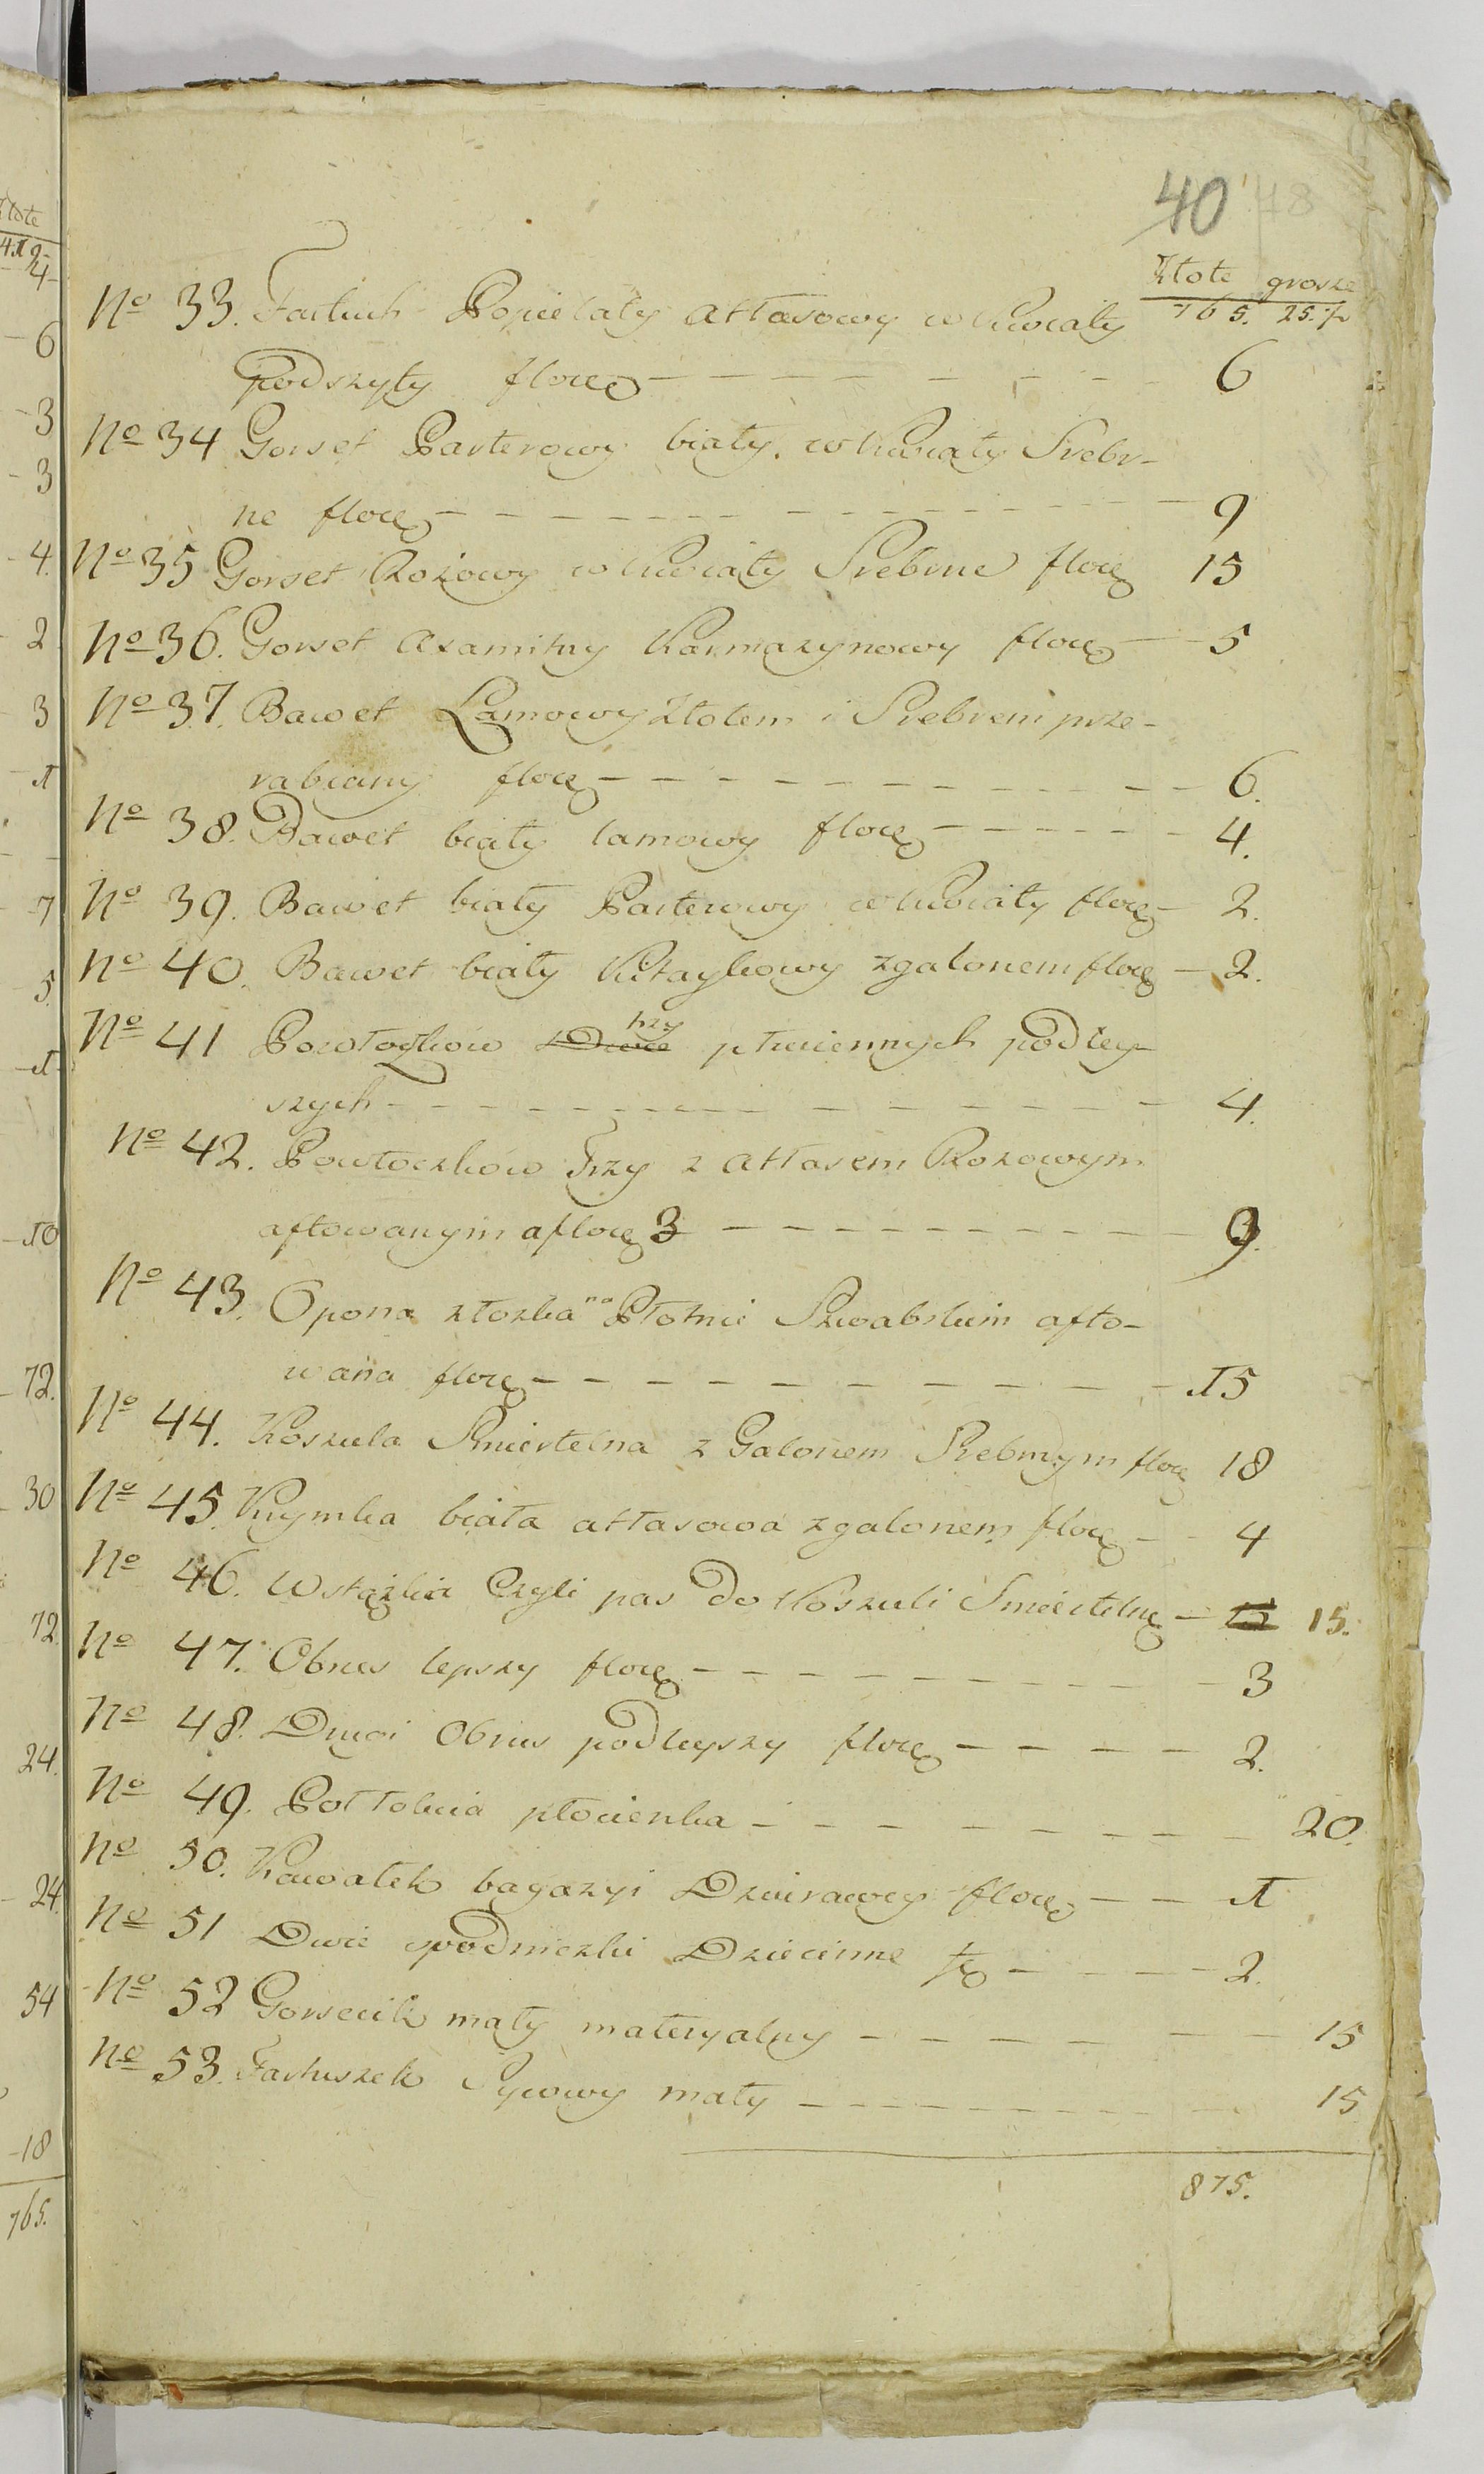 40 48
Złote grosze
765. 25.½
Nº 33. Fartuch Popielaty Atłasowy w kwiaty
podszyty floreę 6
Nº 34 Gorset Parterowy biały, w kwiaty Srebr-
ne floreę 9
Nº 35 Gorset Rożowy w kwiaty Srebrne floreę 15
Nº 36. Gorset Axamitny Karmazynowy floreę 5
Nº 37. Bawet Lamowy Złotem i Srebrem prze-
rabiany floreę 6.
Nº 38. Bawet biały lamowy floreę 4.
Nº 39. Bawet biały Parterowy w kwiaty floreę 2.
Nº 40. Bawet biały Kitaykowy z galonem floreę 2.
trzy
Nº 41 Powłoczków Dwie płuciennych podley-
szych 4.
Nº 42. Powłoczków Trzy z Atłasem Rozowym
aftowanym a floreę 3 9.
Nº 43. Opona z łozka na Płotnie Szwabskim afto-
wana floreę 15
Nº 44. Koszula Smiertelna z Galonem Srebrnym floreę 18
Nº 45. Krymka biała attasowa z galonem floreę 4
Nº 46. Wstążka Czyli pas do Koszuli Smiertelnę 15.
Nº 47. Obrus lepszy floreę 3
Nº 48. Drugi Obrus podleyszy floreę 2.
Nº 49. Połtokcia płocienka 20.
Nº 50. Kawałek bagazyi Dziurawey floreę 1
Nº 51 Dwie spodniczki Dziecinne 2.
Nº 52 Gorsecik mały materyalny 15
Nº 53. Fartuszek Sycowy mały 15
875.
Złote
4
6
3
3
4.
2
3
1
7
5.
1
10
72.
30
72.
24.
24.
54
18
765.